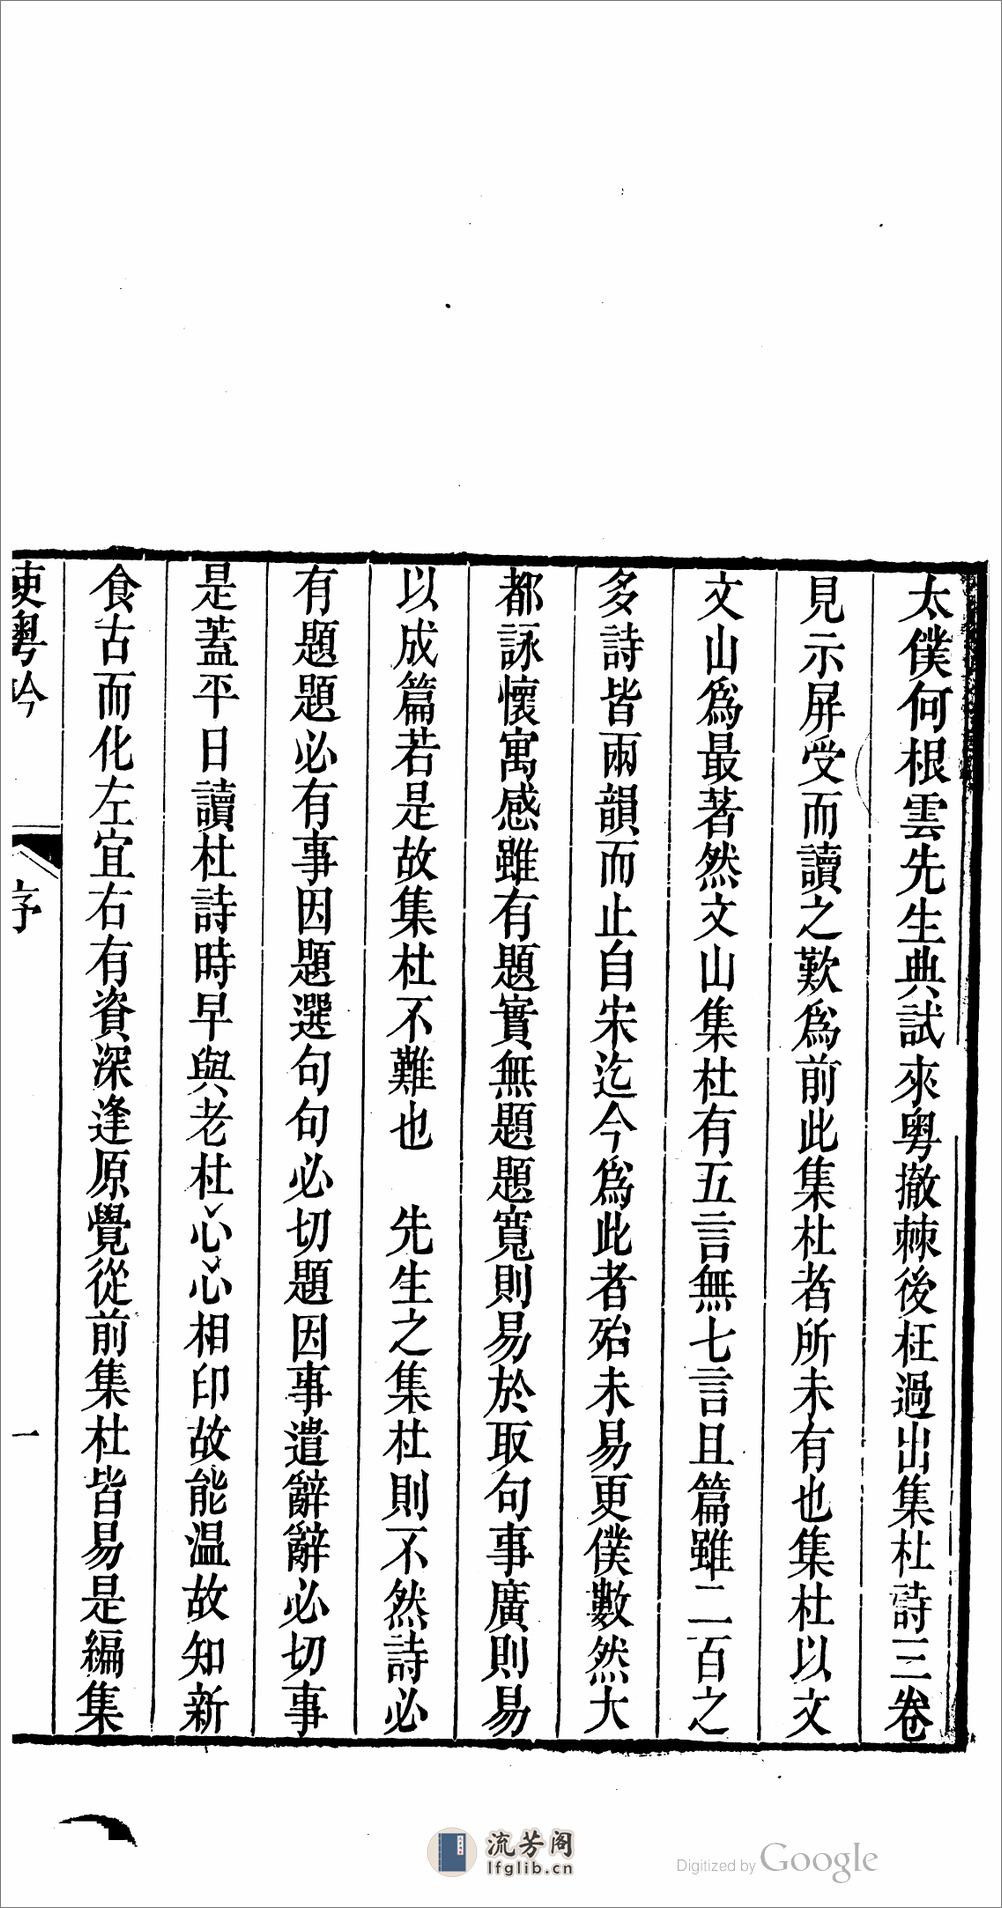 太僕何根雲先生典試來粵撤棘後枉過出集杜詩三卷
見示屏受而讀之歎爲前此集杜者所未有也集杜以文
文山爲最著然文山集杜有五言無七言且篇雖二百之
多詩皆兩韻而止自宋迄今爲此者殆未易更僕數然大
都詠懷寓感雖有題實無題題寬則易於取句事廣則易
以成篇若是故集杜不難也　先生之集杜則不然詩必
有題題必有事因題選句句必切題因事遣辭辭必切事
是蓋平日讀杜詩時早與老杜心心相印故能温故知新
食古而化左宜右有資深逢原覺從前集杜皆易是編集
使粵吟
序
一
流芳阁
lfglib.cn
Digitized by Google